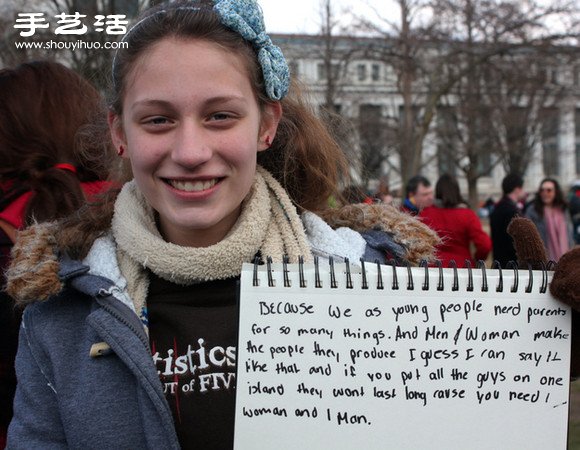 手艺活
www.shouyihuo.com
Because we as young people nerd parents
for so many things. And Men & Woman make
the people they produce I guess I can say it
like that and if you put all the guys on one
island they wont last long cause you need 1
woman and 1 Man.
tistics
UT OF FIVE